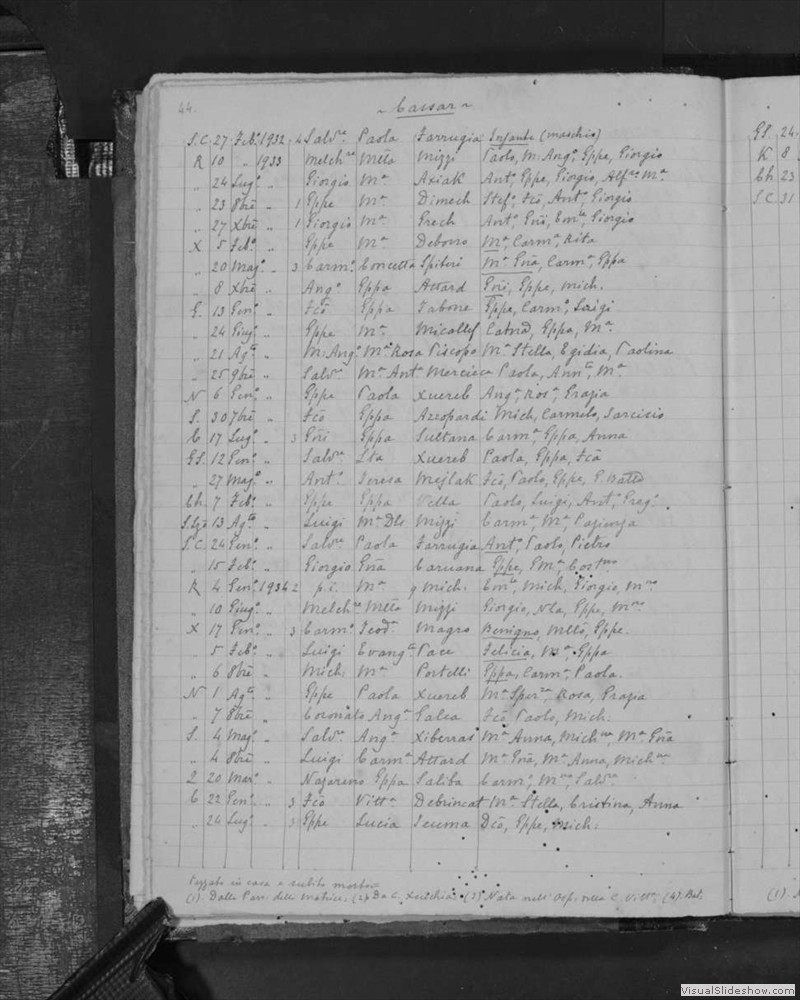 44.
~ Caesar ~
S.C. 27 Feb.º 1932 4 Salv.re Paola Farrugia Infante (maschio)
R 10 " 1933 Melch.re Mtta Mizzi Paolo, M: Ang.º, Eppe, Giorgio
" 24 Lug.º " Giorgio M.a Axiak Ant.º, Eppe, Giorgio, Alf.so M.a
" 23 8bre " 1 Eppe M.a Dimech Stef.º, Fcõ, Ant.º, Giorgio
" 27 Xbre " 1 Giorgio M.a Grech Ant.º, Gni, Em.le, Giorgio
X 5 Feb.º " Eppe M.a Debono M.a, Carm.a, Rita
" 20 Mag.º " 3 Carm.º Concetta Spiteri M.a Gna, Carm.a, Eppa
" 8 Xbre " Ang.º Eppa Attard Gni, Eppe, Mich.
G. 13 Gen.º " Fcõ Eppa Tabone Eppe, Carm.º, Luigi
" 24 Giug.º " Eppe M.a Micallef Catna, Eppa, M.a
" 21 Ag.to " M: Ang.º M.a Rosa Piscopo M.a Stella, Egidia, Paolina
" 25 9bre " Salv.re M.a Ant. Mercieca Paola, Ann.ta, M.a
N 6 Gen.º " Eppe Paola Xuereb Ang.a, Ros.a, Grazia
S. 30 7bre " Fcõ Eppa Azzopardi Mich, Carmelo, Tarcisio
C 17 Lug.º " 3 Gni Eppa Sultana Carm.a, Eppa, Anna
GS. 12 Gen.º " Salv.re Sta Xuereb Paola, Eppa, Fca
" 27 Mag.º " Ant.º Teresa Mejlak Fcõ, Paolo, Eppe, G. Batta
Ch. 7 Feb.º " Eppe Eppa Vella Paolo, Luigi, Ant.º, Greg.º
13 Ag.to " Luigi M.a Dls Mizzi Carm.a M.a
S.C. 24 Gen.º " Salv.re Paola Farrugia Ant.º, Paolo, Pietro
" 15 Feb.º " Giorgio Gna Caruana Eppe,
R 4 Gen.º 1934 2 p.i. M.a q Mich. Em.le, Mich, Giorgio, M.no
" 10 Giug.º " Melch.re Mtta Mizzi Giorgio, Nla, Eppe, M.no
X 17 Gen.º " 3 Carm.º Teod.a Magro Benigno, Mtteo, Eppe.
" 5 Feb.º " Luigi Evang.ta Pace Felicia, M.a, Eppa
" 6 8bre " Mich: M.a Portelli Eppa, Carm.a, Paola.
N 1 Ag.to " Eppe Paola Xuereb M.a Sper.za, Rosa, Grazia
" 7 8bre " Coronato Ang.a Galea Fcõ, Paolo, Mich.
S. 4 Mag.º " Salv.re Ang.a Xiberras M.a Anna, Mich.na, M.a Gna
" 4 8bre " Luigi Carm.a Attard M.a Gna, M.a Anna, Mich.na
Q 20 Mar.º " Nazareno Eppa Saliba Carm.º, M.no, Salv.re
C 22 Gen.º " 3 Fcõ Vitt.a Debrincat M.a Stella, Cristina, Anna
" 24 Lug.º " 3 Eppe Lucia Scuma Dcõ, Eppe, Mich:
in casa e subito
(1) Dalla Parr. della Matrice. (2) Da C. (3) Nata nell' Osp. della C. Vitt.a (4)
GS. 24.
K 8
Ch. 23
S.C. 31
(1).
VisualSlideshow.com